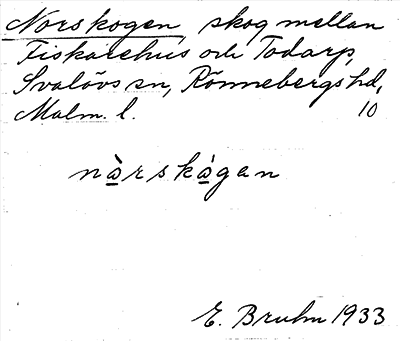 Norskogen, skog mellan
Fiskarehus och Todarp,
Svalövs sn, Rönnebergs hd,
Malm. l. 10
nàrskågan
E. Bruhn 1933